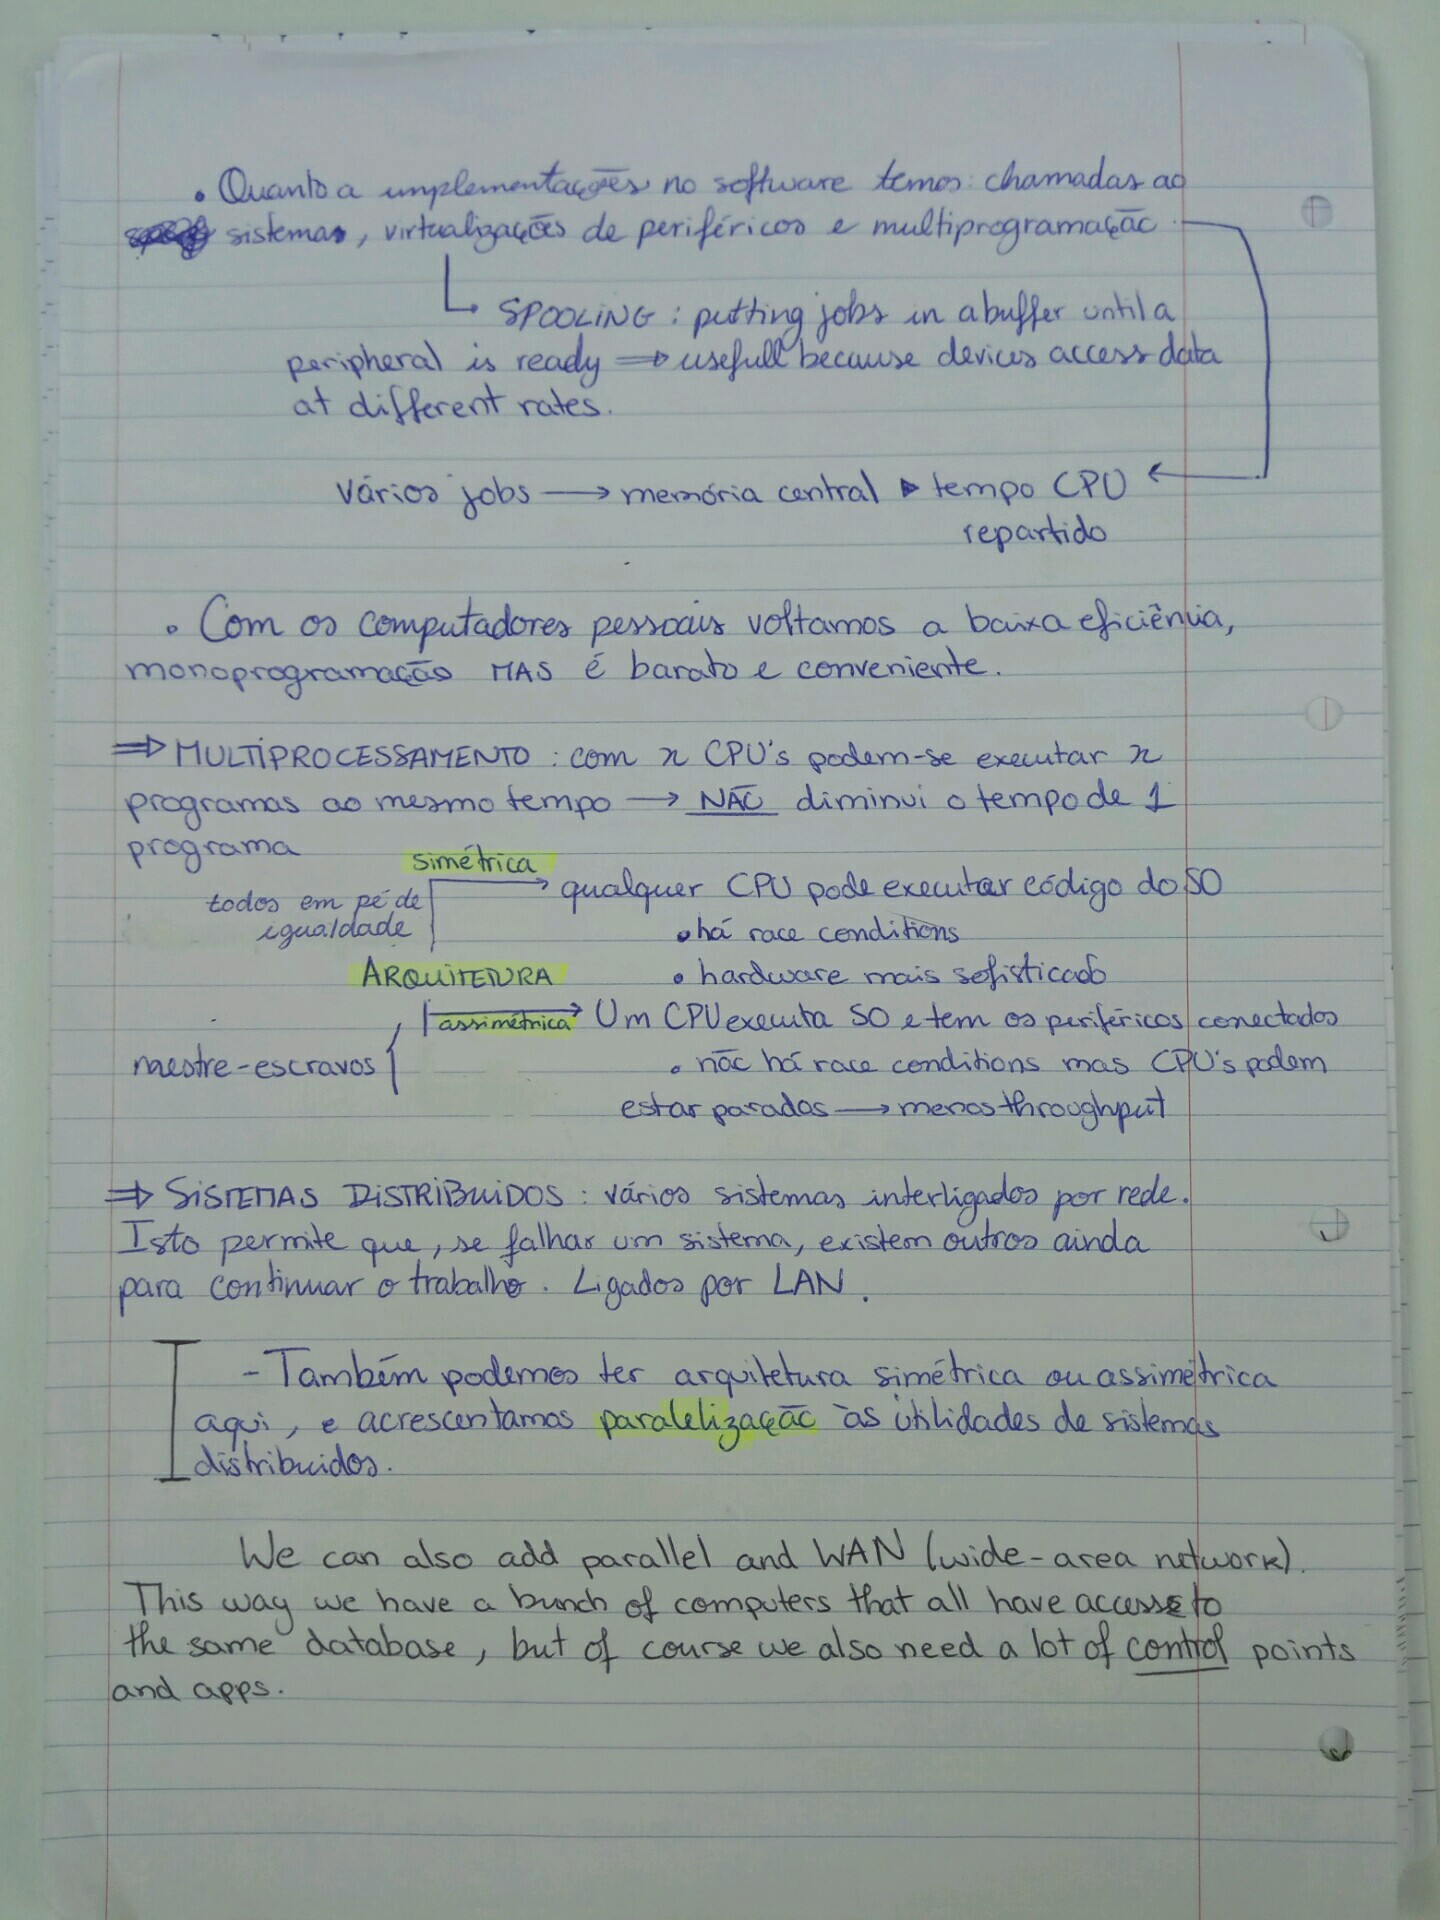 • Quanto a implementações no software temos: chamadas ao
sistema, virtualizações de periféricos e multiprogramação
↳ SPOOLING : putting jobs in a buffer until a
peripheral is ready ⇒ usefull because devices access data
at different rates.
Vários jobs → memória central ▸ tempo CPU ←
repartido
• Com os computadores pessoais voltamos a baixa eficiência,
monoprogramação MAS é barato e conveniente.
⇒ MULTIPROCESSAMENTO : com n CPU's podem-se executar n
programas ao mesmo tempo → NÃO diminui o tempo de 1
programa
simétrica → qualquer CPU pode executar código do SO
todos em pé de
igualdade
• há race conditions
ARQUITETURA
• hardware mais sofisticado
assimétrica → Um CPU executa SO e tem os periféricos conectados
mestre-escravos
• não há race conditions mas CPU's podem
estar parados → menos throughput
⇒ SISTEMAS DISTRIBUIDOS : vários sistemas interligados por rede.
Isto permite que, se falhar um sistema, existem outros ainda
para continuar o trabalho. Ligados por LAN.
- Também podemos ter arquitetura simétrica ou assimétrica
aqui, e acrescentamos paralelização às utilidades de sistemas
distribuidos.
We can also add parallel and WAN (wide-area network).
This way we have a bunch of computers that all have access to
the same database, but of course we also need a lot of control points
and apps.